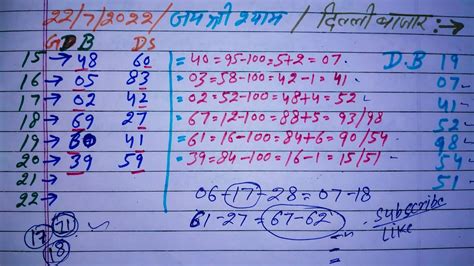 22/7/2022/ जय श्री श्याम / दिल्ली बाजार :→
G D B D S
15 → 48 60 = 40 = 95-100 = 5+2 = 07. D.B 19
16 → 05 83 = 03 = 58-100 = 42-1 = 41 07
17 → 02 42 = 02 = 52-100 = 48+4 = 52 41
18 → 69 27 = 67 = 12-100 = 88+5 = 93/98 52
19 → 41 = 61 = 16-100 = 84+6 = 90/54 98
20 → 39 59 = 39 = 84-100 = 16-1 = 15/51 54
21 → 51
22 →
06-17-28 = 07-18
61-27 = 67-62
Subscribe
Like
17 71
18